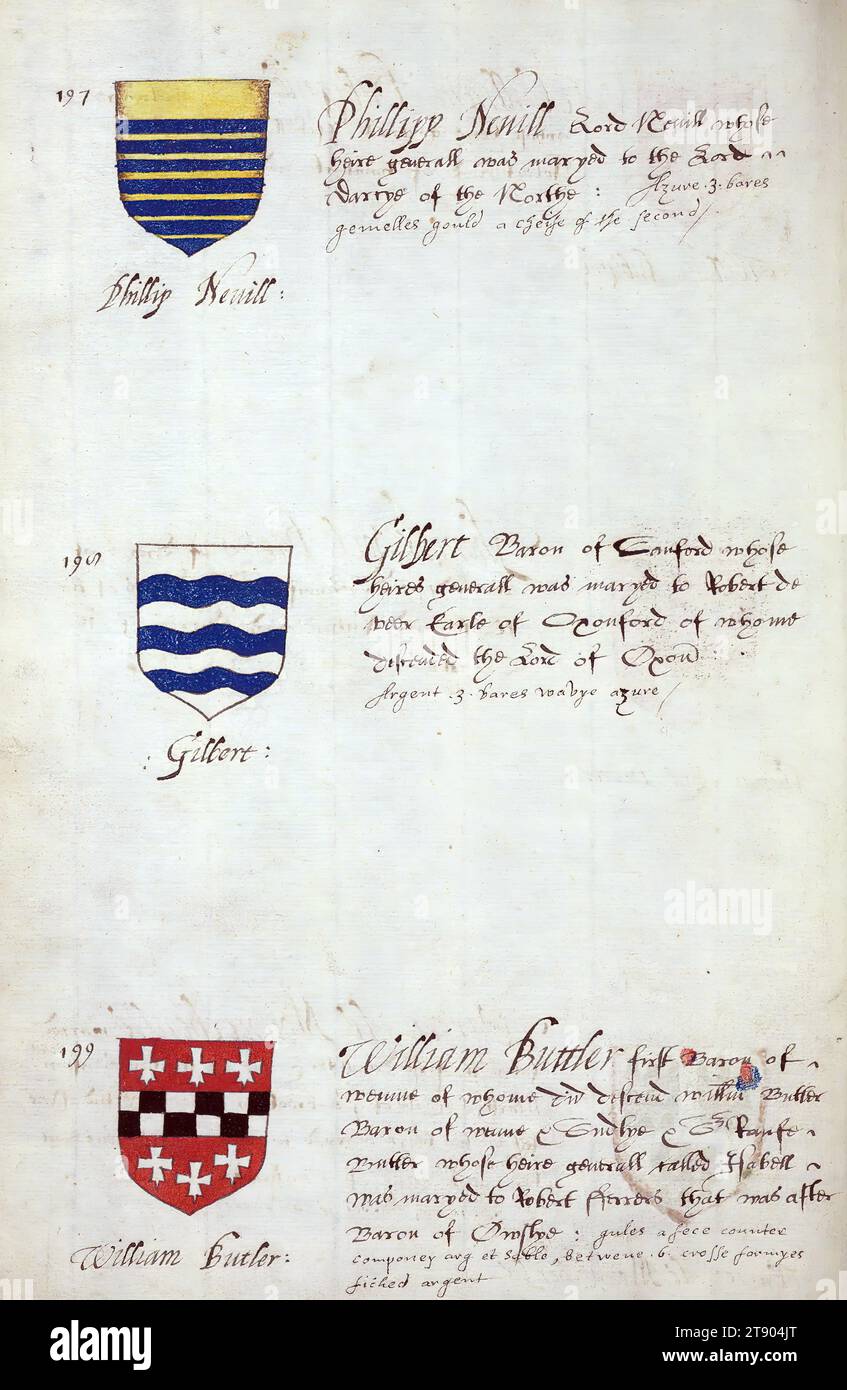 197
Phillipp Nevill Lord Nevill whose
heire generall was maryed to the Lord
Darcye of the Northe : Azure .3. bares
gemelles gould a cheife of the second /
Phillip Nevill :
198
Gilbert Baron of Sanford whose
heires generall was maryed to Robert de
veer Earle of Oxonford of whome
descended the Lord of Oxon :
Argent .3. bares wavye azure /
: Gilbert :
199
William Buttler first Baron of
wemme of whome did descend willm Butler
Baron of wemme & Raufe
Butler whose heire generall called Isabell
was maryed to Robert fferrers that was after
Baron of Owslye : gules a fece counter
componey arg et sable, betwene .6. crosse formyes
fiched argent
William Butler :
alamy
alamy
alamy
alamy
Image ID: 2T904JT
www.alamy.com